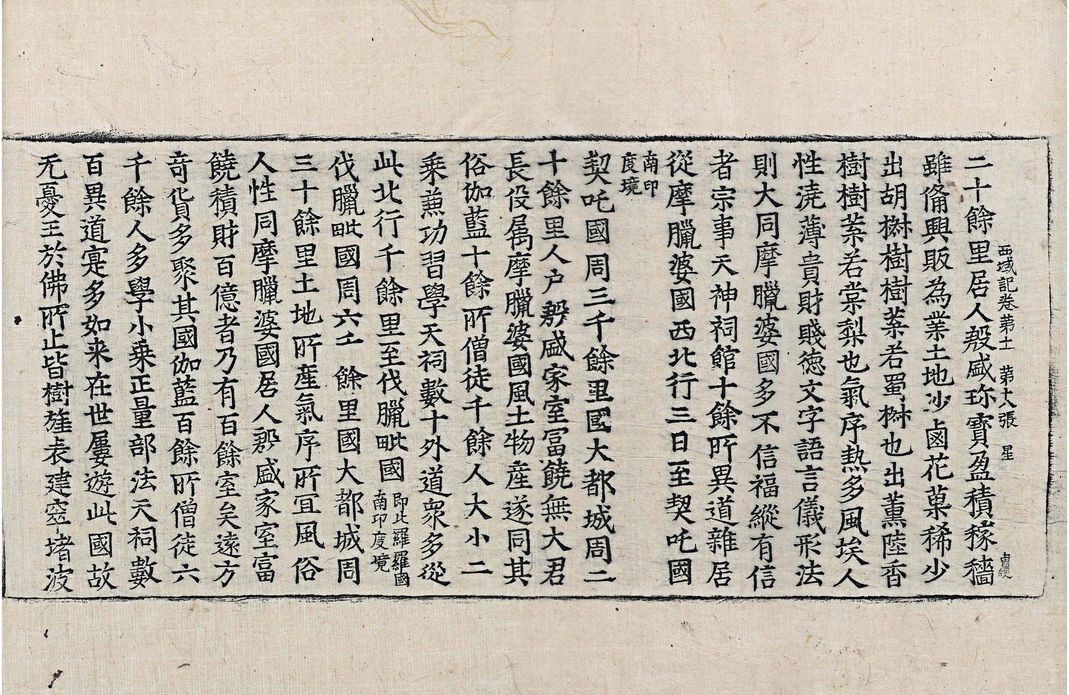 西域記卷第十一 第十六張 星
二十餘里居人殷盛珎寶盈積稼穡
雖俻興販為業土地沙鹵花菓稀少
出胡樹樹樹葉若蜀樹也出薰陸香
樹樹葉若棠梨也氣序熱多風埃人
性澆薄貴財賤德文字語言儀形法
則大同摩臘婆國多不信福縱有信
者宗事天神祠館十餘所異道雜居
從摩臘婆國西北行三日至契吒國
南印
度境
契吒國周三千餘里國大都城周二
十餘里人户殷盛家室冨饒無大君
長役属摩臘婆國風土物産遂同其
俗伽藍十餘所僧徒千餘人大小二
乘兼功習學天祠數十外道衆多從
此北行千餘里至伐臘毗國
即北羅羅國
南印度境
伐臘毗國周六千餘里國大都城周
三十餘里土地所産氣序所冝風俗
人性同摩臘婆國居人殷盛家室富
饒積財百億者乃有百餘室矣遠方
竒貨多聚其國伽藍百餘所僧徒六
千餘人多學小乘正量部法天祠數
百異道寔多如来在世屢遊此國故
无憂王於佛所止皆樹旌表建窣堵波